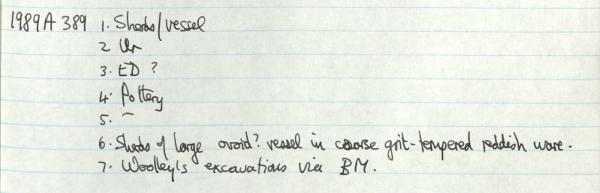 1989A 389 1. Sherds/vessel
2 Ur
3. ED ?
4. Pottery
5. –
6. Sherds of large ovoid? vessel in coarse grit-tempered reddish ware.
7. Woolley's excavations via BM.